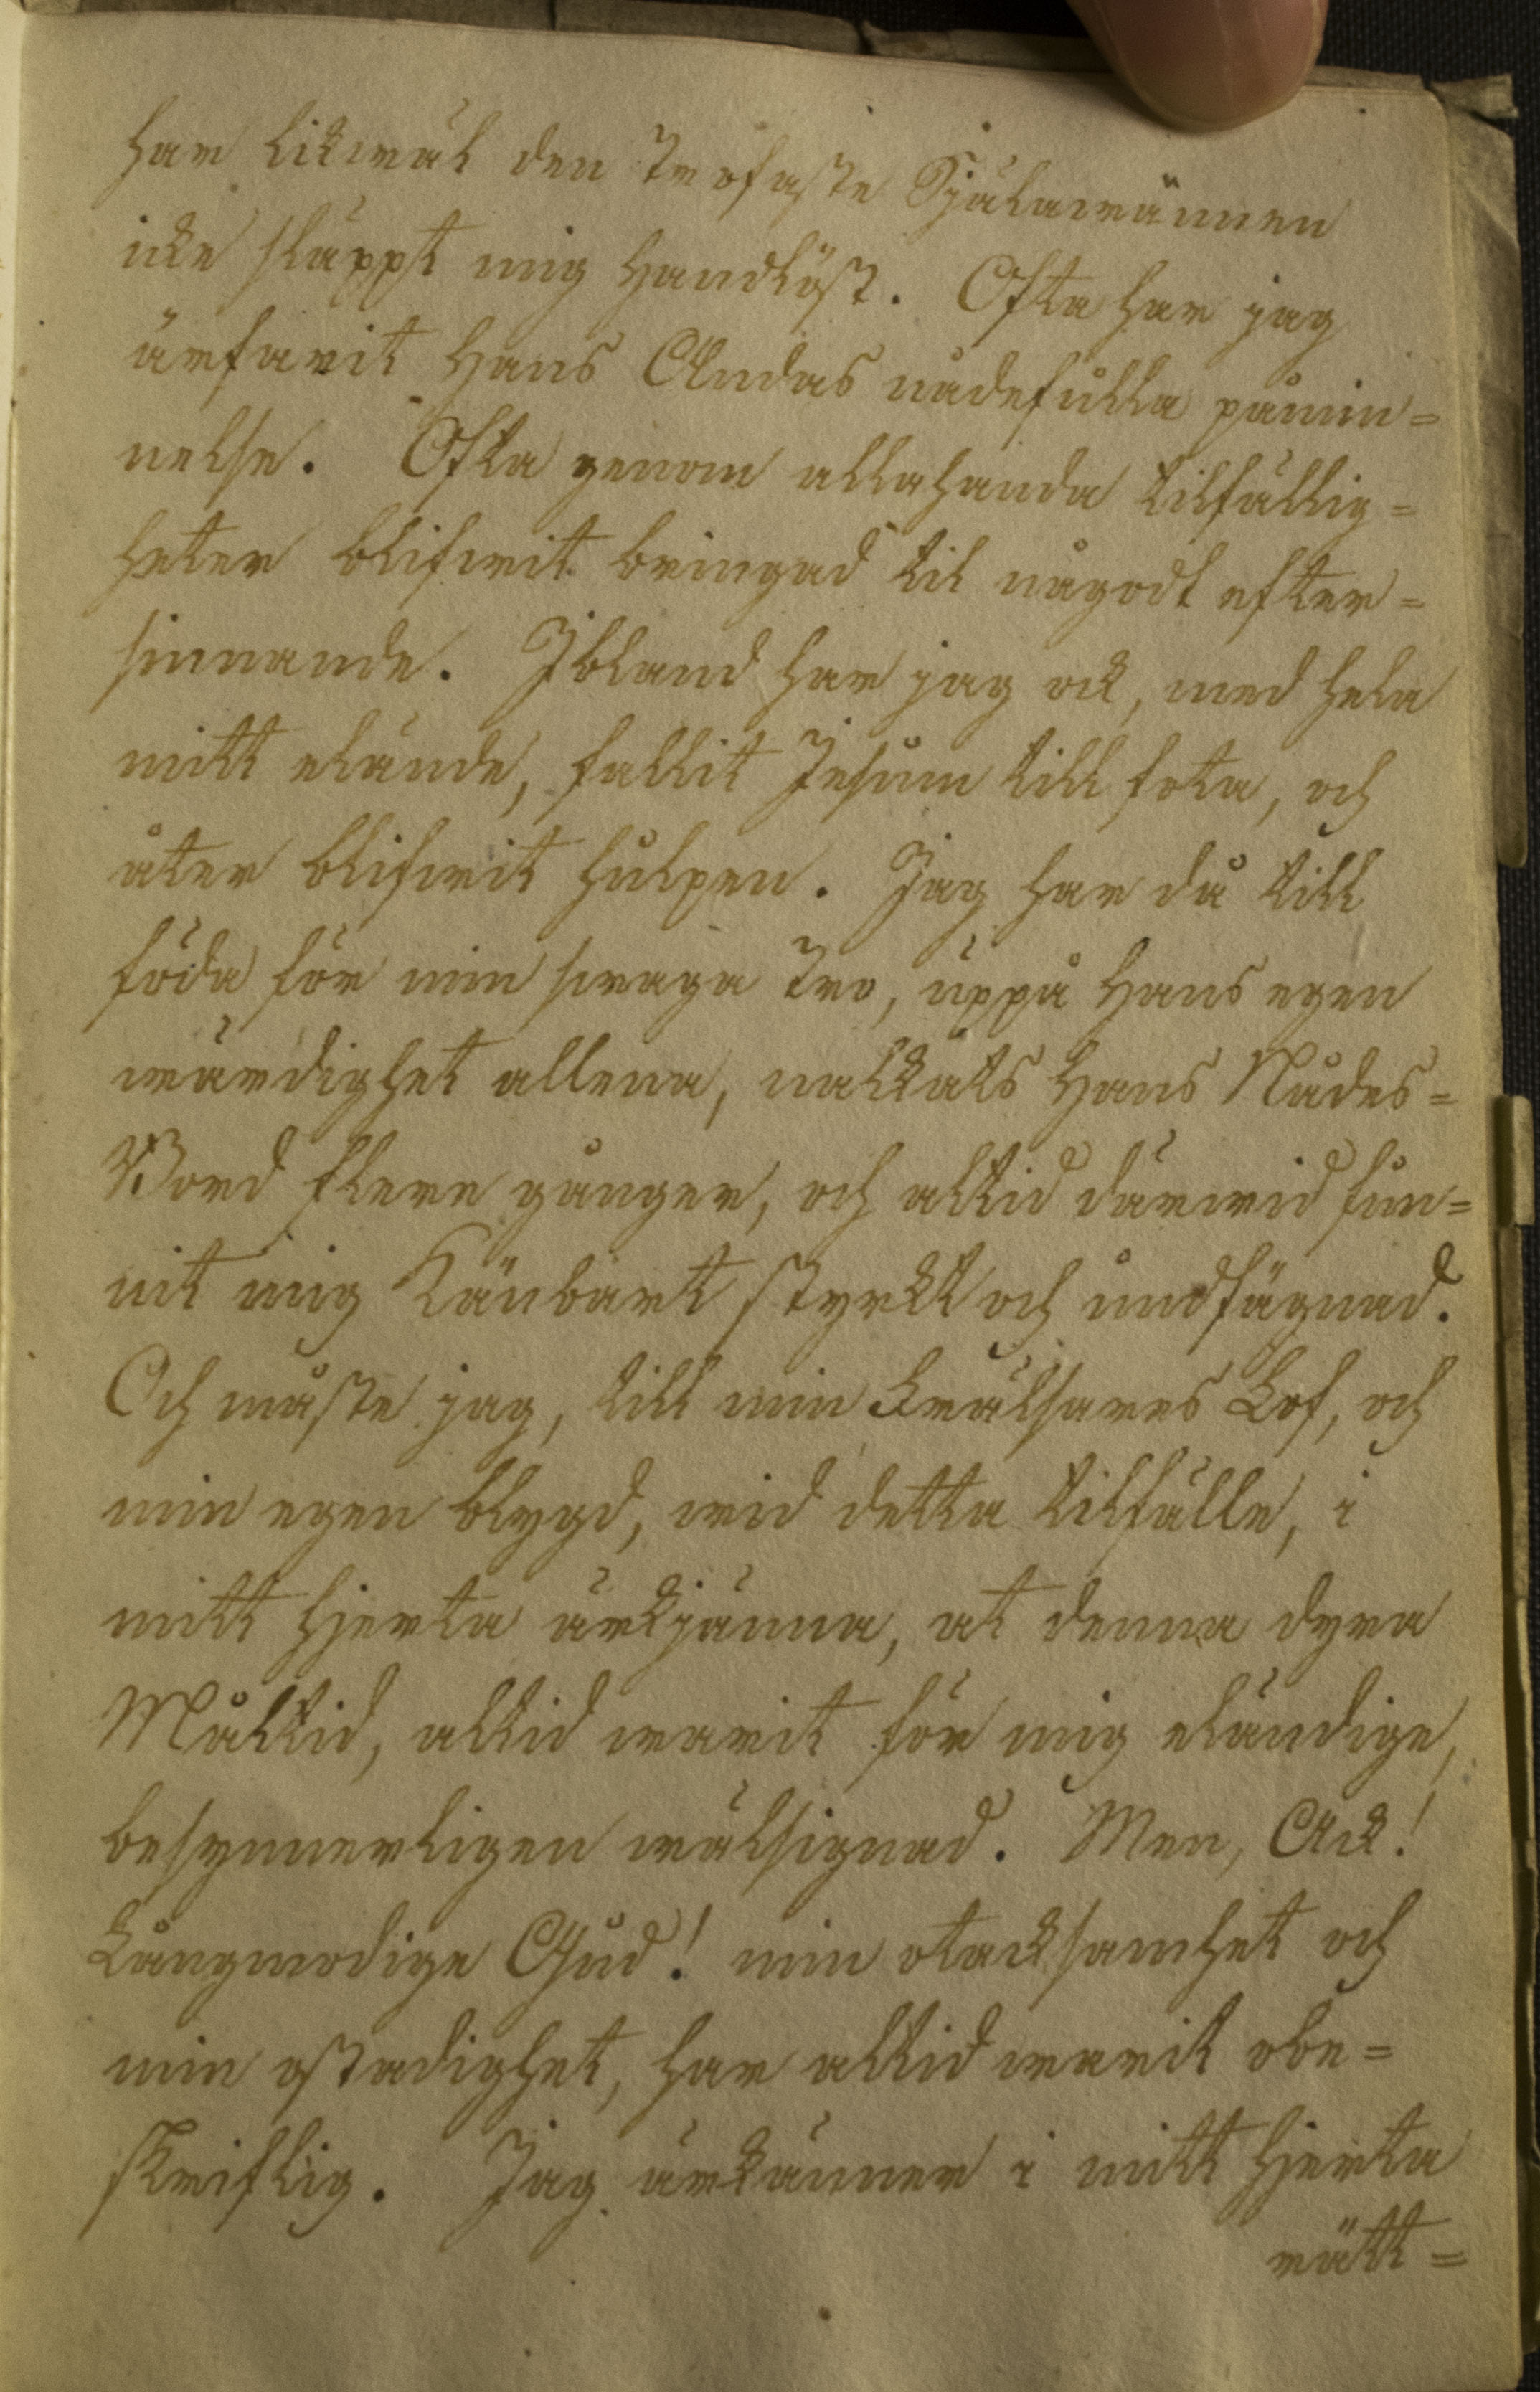 har likwäl den trofaste Själawännen
icke släppt mig handlöst. Ofta har jag
ärfarit Hans Andas nådefulla påmin=
nelse. Ofta genom allahanda tilfällig=
heter blifwit bringad til någodt efter=
sinnande. Ibland har jag ock, med hela
mitt elände, fallit Jesum till fota, och
åter blifwit hulpen. Jag har då till
föda för min swaga tro, uppå Hans egen
wärdighet allena, nalkats Hans Nådes=
Bord flere gånger, och altid därwid fun=
nit mig känbart styrkt och undfägnad.
Och måste jag, till min Frälsares Lof, och
min egen blygd, wid detta tilfälle, i
mitt hjerta ärkjänna, at denna dyra
Måltid, altid warit för mig eländige,
besynnerligen wälsignad. Men, Ack!
Långmodige Gud! min otacksamhet och
min ostadighet, har altid warit obe=
skriflig. Jag ärkänner i mitt hjerta
rätt=